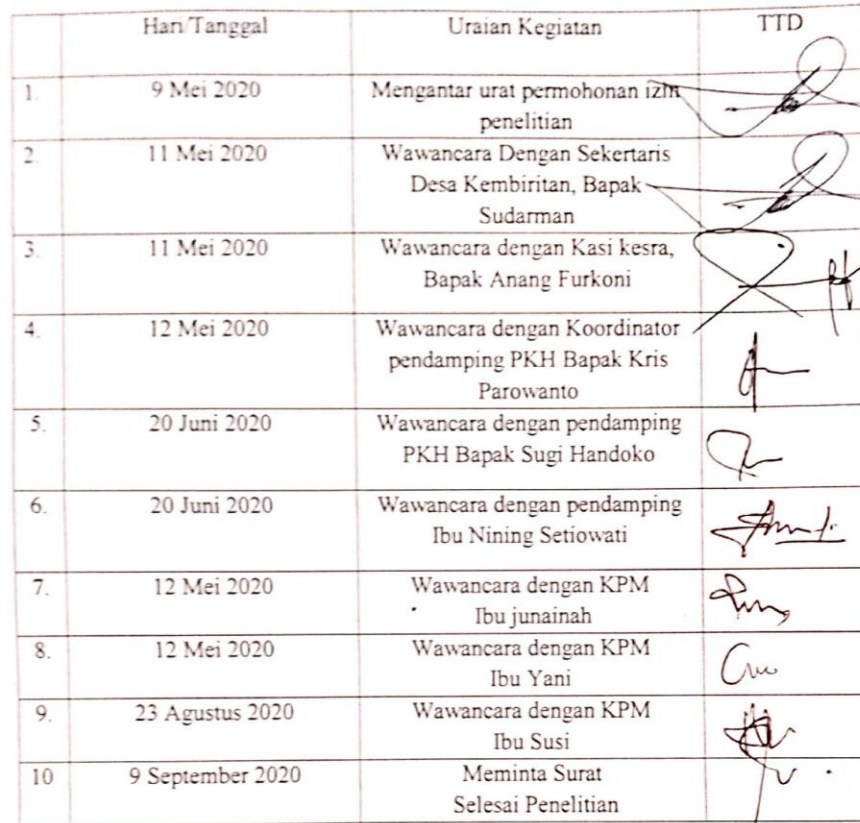 Hari/Tanggal Uraian Kegiatan TTD
1. 9 Mei 2020 Mengantar urat permohonan izin
penelitian
2. 11 Mei 2020 Wawancara Dengan Sekertaris
Desa Kembiritan, Bapak
Sudarman
3. 11 Mei 2020 Wawancara dengan Kasi kesra,
Bapak Anang Furkoni
4. 12 Mei 2020 Wawancara dengan Koordinator
pendamping PKH Bapak Kris
Parowanto
5. 20 Juni 2020 Wawancara dengan pendamping
PKH Bapak Sugi Handoko
6. 20 Juni 2020 Wawancara dengan pendamping
Ibu Nining Setiowati
7. 12 Mei 2020 Wawancara dengan KPM
Ibu junainah
8. 12 Mei 2020 Wawancara dengan KPM
Ibu Yani
9. 23 Agustus 2020 Wawancara dengan KPM
Ibu Susi
10 9 September 2020 Meminta Surat
Selesai Penelitian